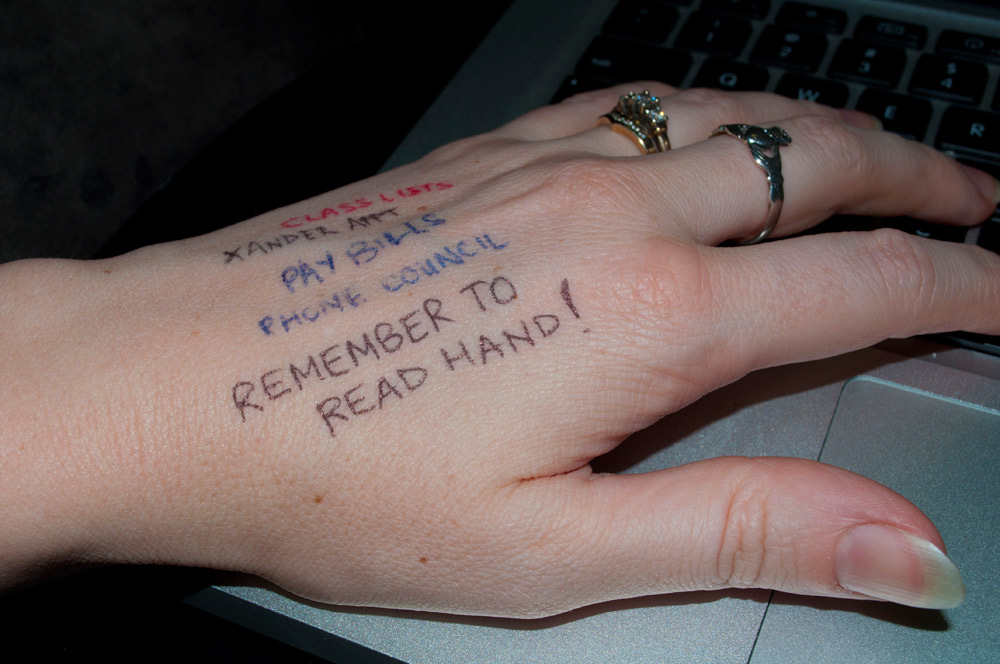 CLASS LISTS
XANDER APPT
PAY BILLS
PHONE COUNCIL
REMEMBER TO
READ HAND!
1
2
3
4
Q
W
E
R